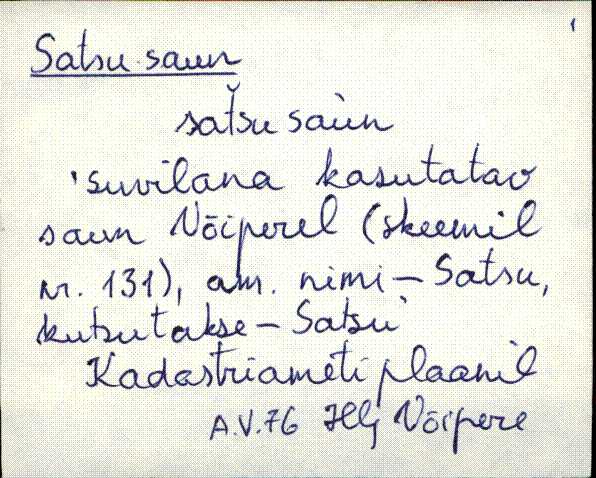 Satsu saun
satšu saùn
'suvilana kasutatav
saun Võiperel (skeemil
nr. 131), am. nimi – Satsu,
kutsutakse – Satsu'
Kadastriameti plaanil
A.V.76 Hlj Võipere